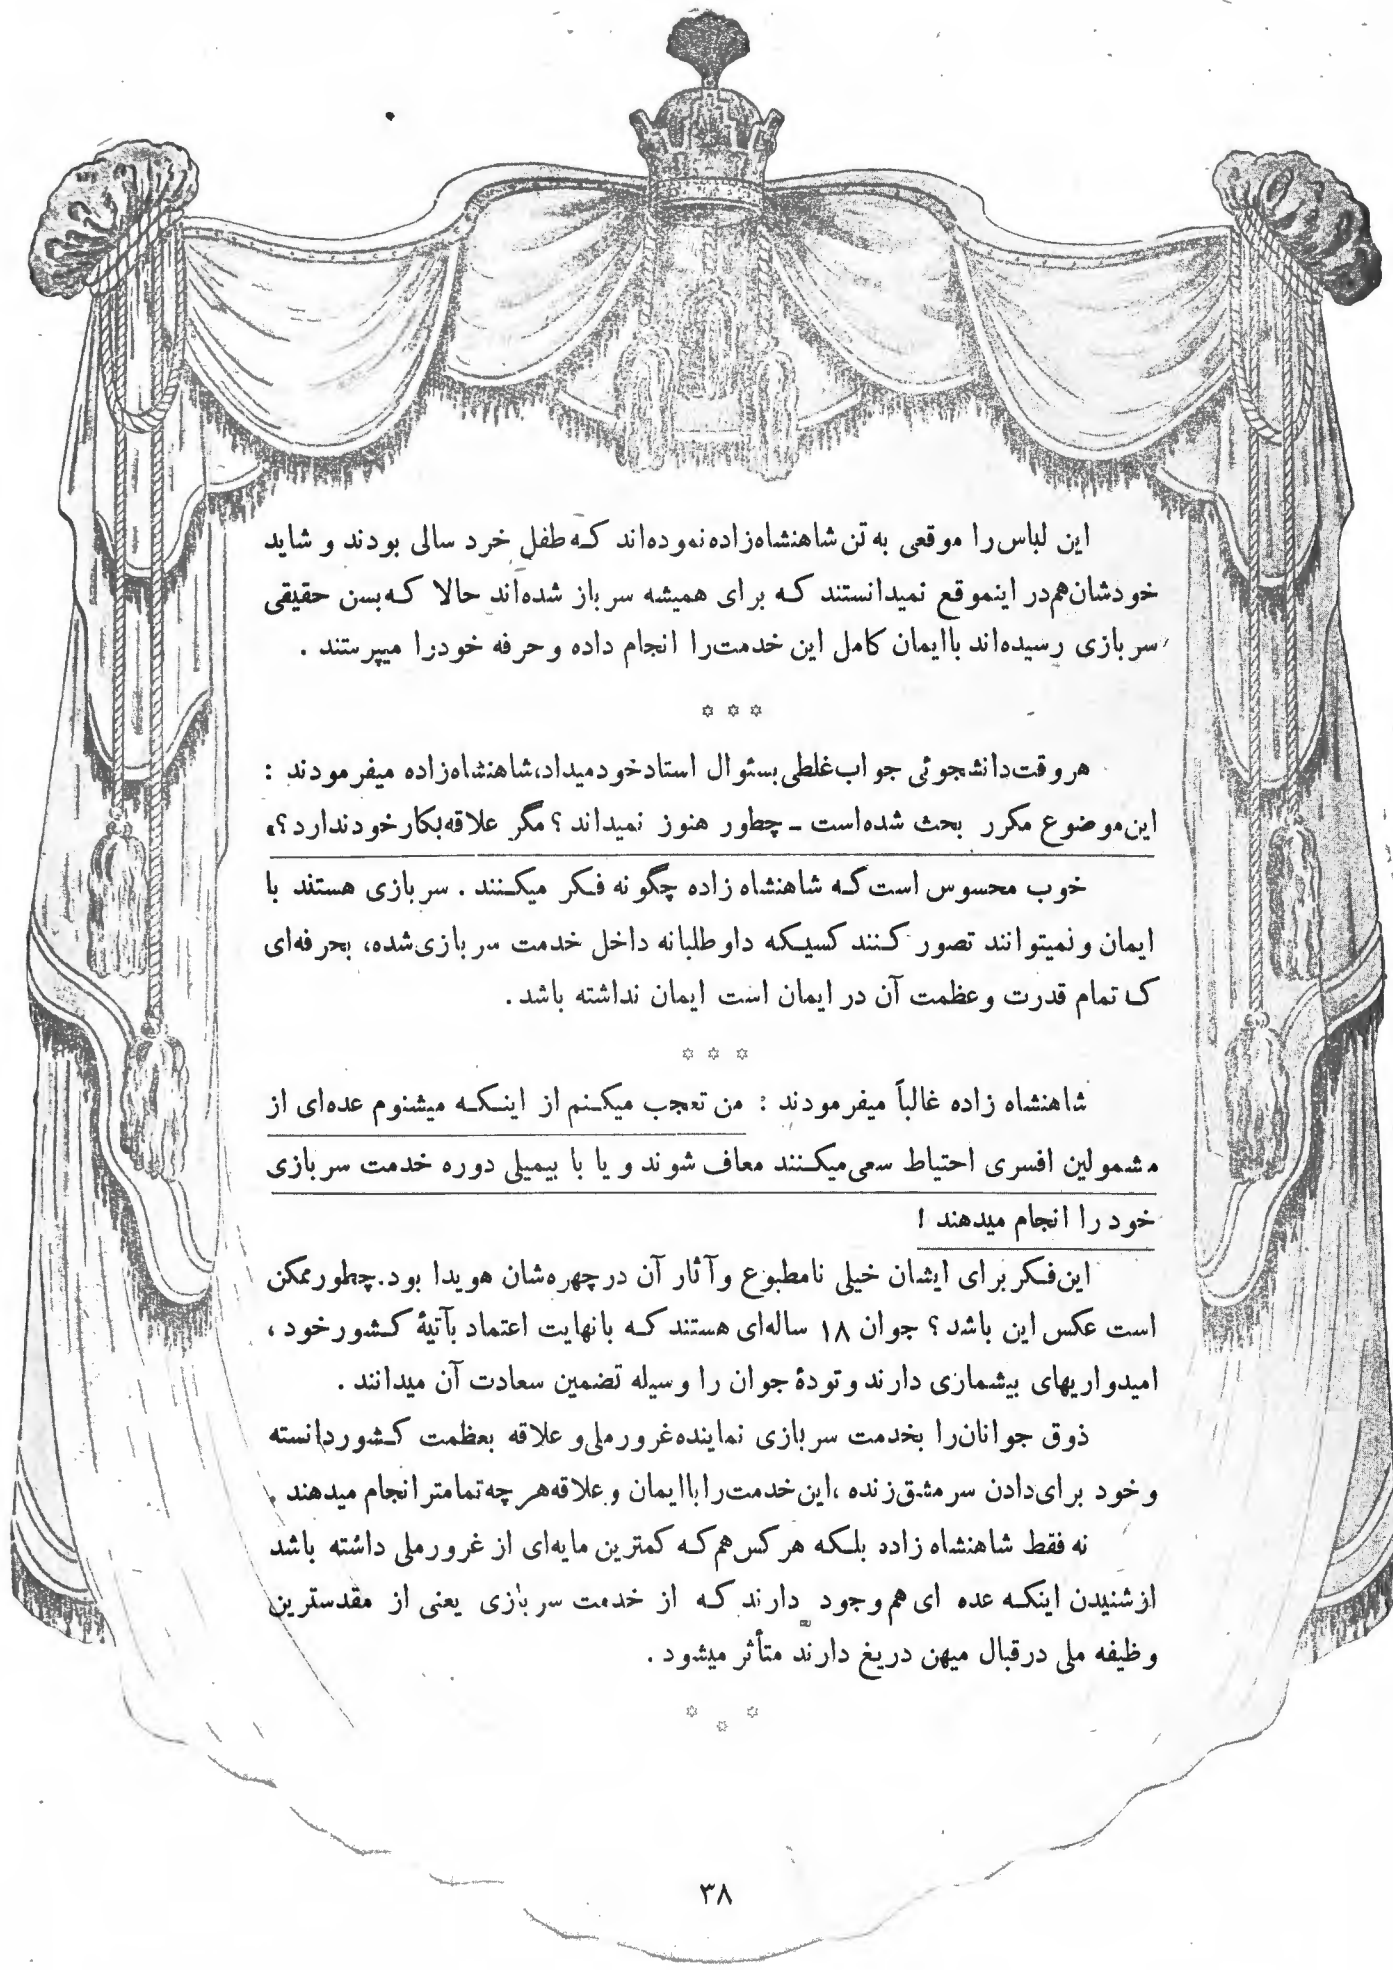 این لباس را موقعی به تن شاهنشاه‌زاده نموده‌اند که طفل خرد سالی بودند و شاید
خودشان هم در اینموقع نمیدانستند که برای همیشه سرباز شده‌اند حالا که بسن حقیقی
سربازی رسیده‌اند باایمان کامل این خدمت را انجام داده و حرفه خودرا میپرستند .
✡ ✡ ✡
هروقت دانشجوئی جواب غلطی بسئوال استاد خود میداد، شاهنشاه‌زاده میفرمودند :
این موضوع مکرر بحث شده‌است ـ چطور هنوز نمیداند ؟ مگر علاقه بکار خود ندارد ؟»
خوب محسوس است که شاهنشاه زاده چگونه فکر میکنند . سربازی هستند با
ایمان و نمیتوانند تصور کنند کسیکه داوطلبانه داخل خدمت سربازی شده، بحرفه‌ای
که تمام قدرت و عظمت آن در ایمان است ایمان نداشته باشد .
✡ ✡ ✡
شاهنشاه زاده غالباً میفرمودند : من تعجب میکنم از اینکه میشنوم عده‌ای از
مشمولین افسری احتیاط سعی میکنند معاف شوند و یا با بیمیلی دوره خدمت سربازی
خود را انجام میدهند !
این فکر برای ایشان خیلی نامطبوع و آثار آن در چهره‌شان هویدا بود. چطور ممکن
است عکس این باشد ؟ جوان ۱۸ ساله‌ای هستند که بانهایت اعتماد بآتیهٔ کشور خود ،
امیدواریهای بیشماری دارند و تودهٔ جوان را وسیله تضمین سعادت آن میدانند .
ذوق جوانان را بخدمت سربازی نماینده غرور ملی و علاقه بعظمت کشور دانسته
و خود برای دادن سرمشق زنده ، این خدمت را باایمان و علاقه هر چه تمامتر انجام میدهند .
نه فقط شاهنشاه زاده بلکه هر کس هم که کمترین مایه‌ای از غرور ملی داشته باشد
از شنیدن اینکه عده ای هم وجود دارند که از خدمت سربازی یعنی از مقدسترین
وظیفه ملی درقبال میهن دریغ دارند متأثر میشود .
✡ ✡ ✡
۳۸